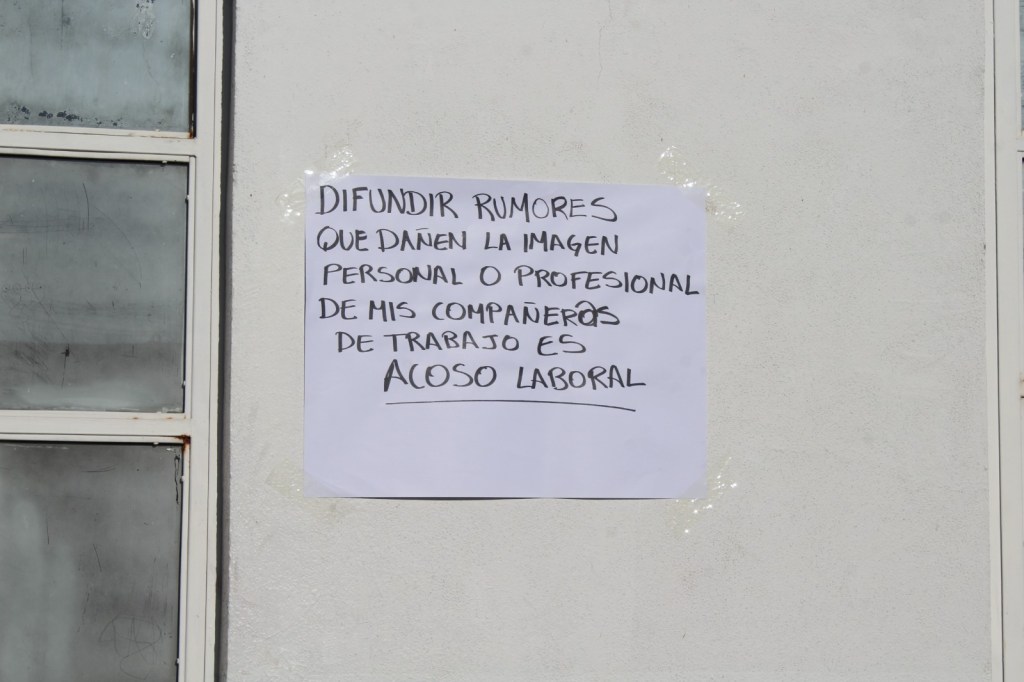 DIFUNDIR RUMORES
QUE DAÑEN LA IMAGEN
PERSONAL O PROFESIONAL
DE MIS COMPAÑER@S
DE TRABAJO ES
ACOSO LABORAL